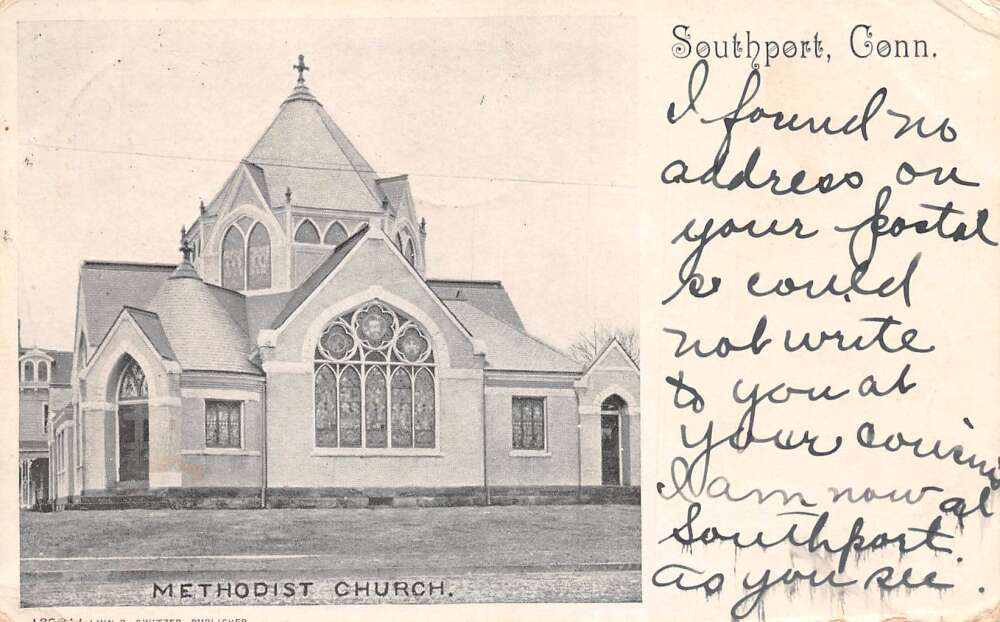 Southport, Conn.
I found no
address on
your postal
so could
not write
to you at
your cousin's
I am now at
Southport.
as you see.
METHODIST CHURCH.
PUBLISHER